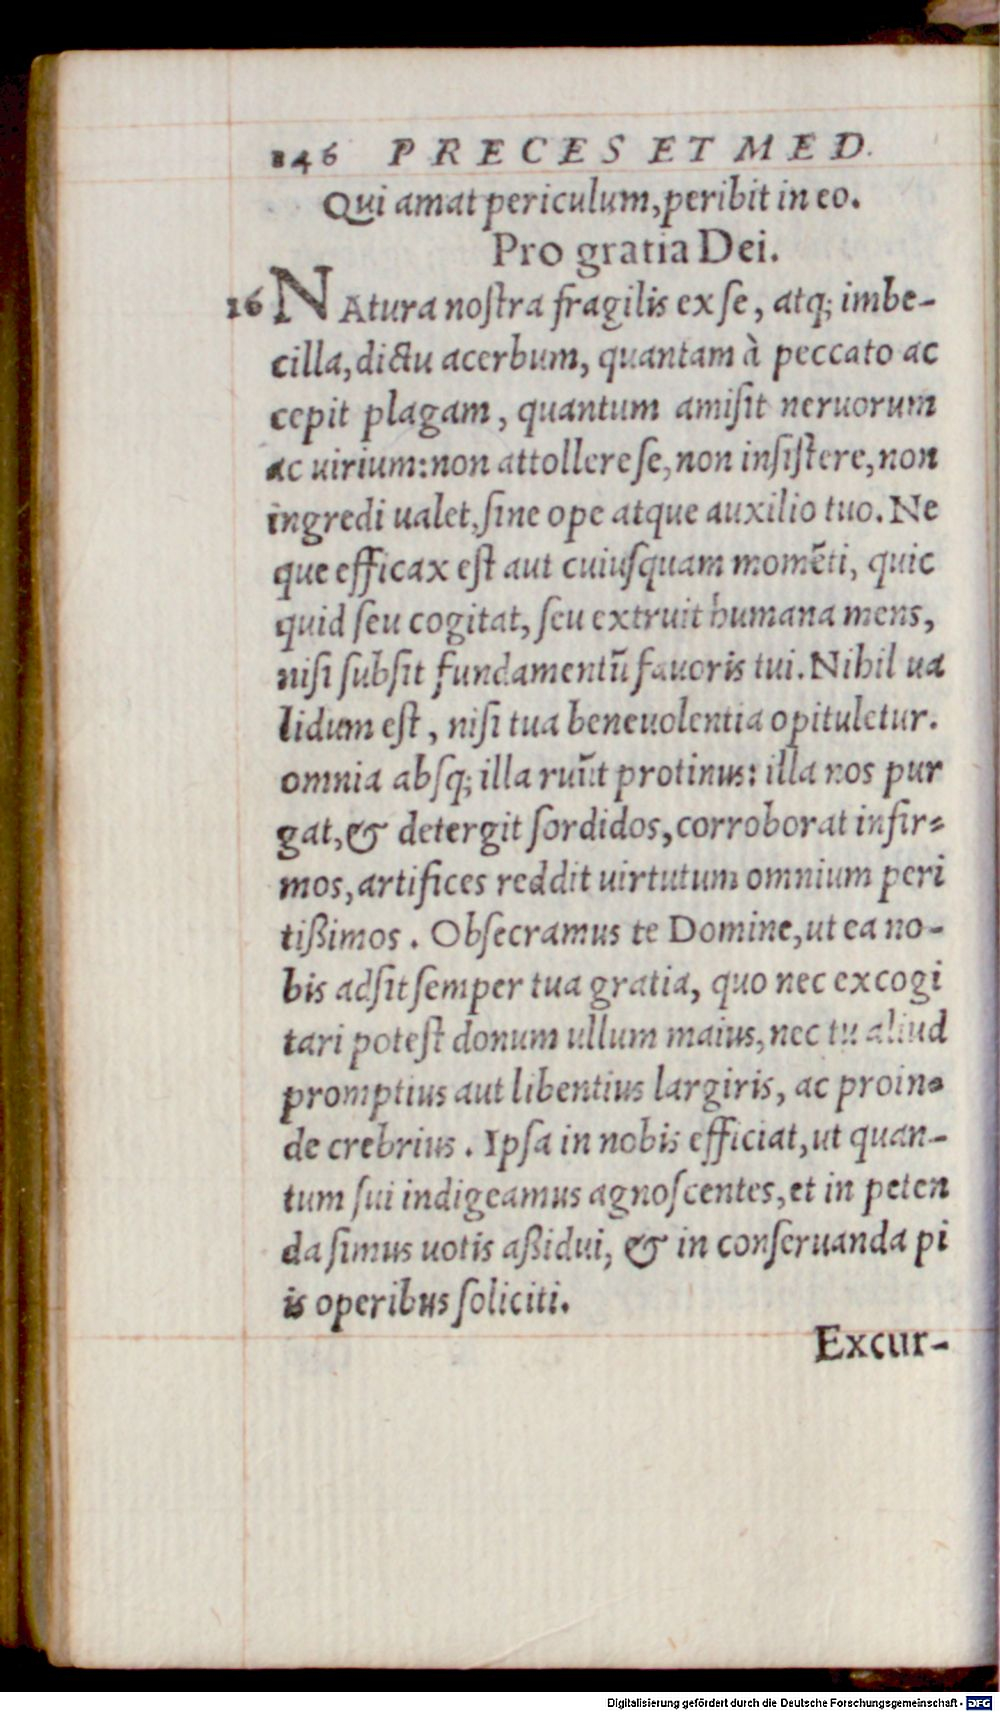 146 PRECES ET MED.
Qui amat periculum, peribit in eo.
Pro gratia Dei.
16 NAtura noſtra fragilis ex ſe, atq; imbe-
cilla, dictu acerbum, quantam à peccato ac
cepit plagam, quantum amiſit neruorum
ac uirium: non attollere ſe, non inſiſtere, non
ingredi ualet, ſine ope atque auxilio tuo. Ne
que efficax eſt aut cuiuſquam momēti, quic
quid ſeu cogitat, ſeu extruit humana mens,
niſi ſubſit fundamentū fauoris tui. Nihil ua
lidum eſt, niſi tua beneuolentia opituletur.
omnia abſq; illa ruūt protinus: illa nos pur
gat, & detergit ſordidos, corroborat infir-
mos, artifices reddit uirtutum omnium peri
tißimos. Obſecramus te Domine, ut ea no-
bis adſit ſemper tua gratia, quo nec excogi
tari poteſt donum ullum maius, nec tu aliud
promptius aut libentius largiris, ac proin-
de crebrius. Ipſa in nobis efficiat, ut quan-
tum ſui indigeamus agnoſcentes, et in peten
da ſimus uotis aßidui, & in conſeruanda pi
is operibus ſoliciti.
Excur-
Digitalisierung gefördert durch die Deutsche Forschungsgemeinschaft - DFG